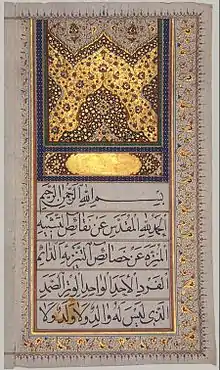 بسم الله الرحمن الرحيم
الحمد لله المقدس عن نقائص تشبيه
المنزه عن خصائص التنزيه الدائم
الفرد الأحد الواحد الوتر الصمد
الذي ليس له والد ولا ولد ولا